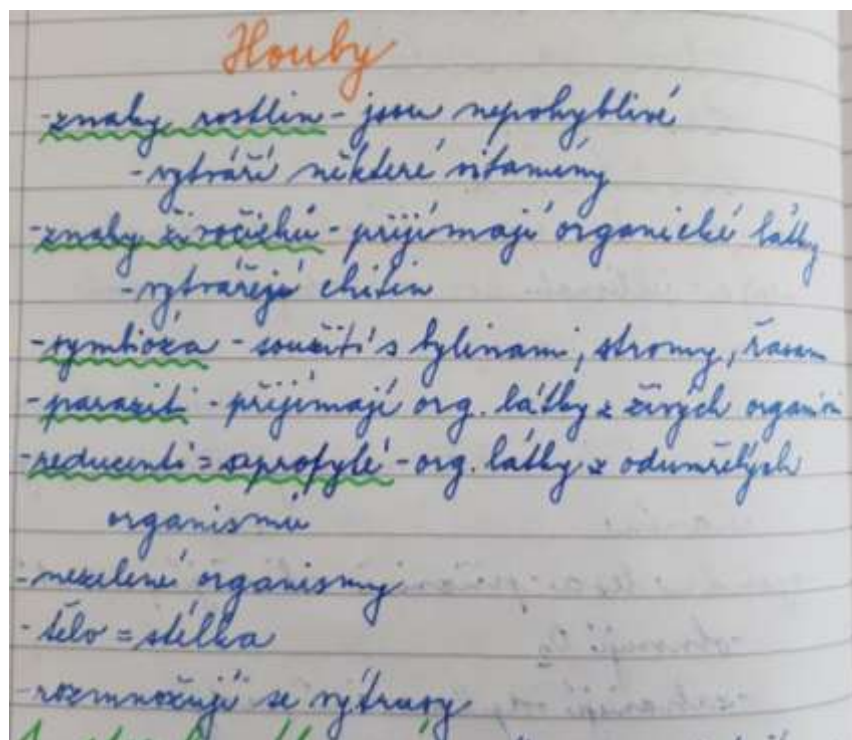 Houby
-znaky rostlin - jsou nepohyblivé
-vytváří některé vitamíny
-znaky živočichů - přijímají organické látky
-vytvářejí chitin
-symbióza - soužití s bylinami, stromy, řasam
-paraziti - přijímají org. látky z živých organis
-reducenti = saprofyté - org. látky z odumřelých
organismů
-nezelené organismy
-tělo = stélka
-rozmnožují se výtrusy